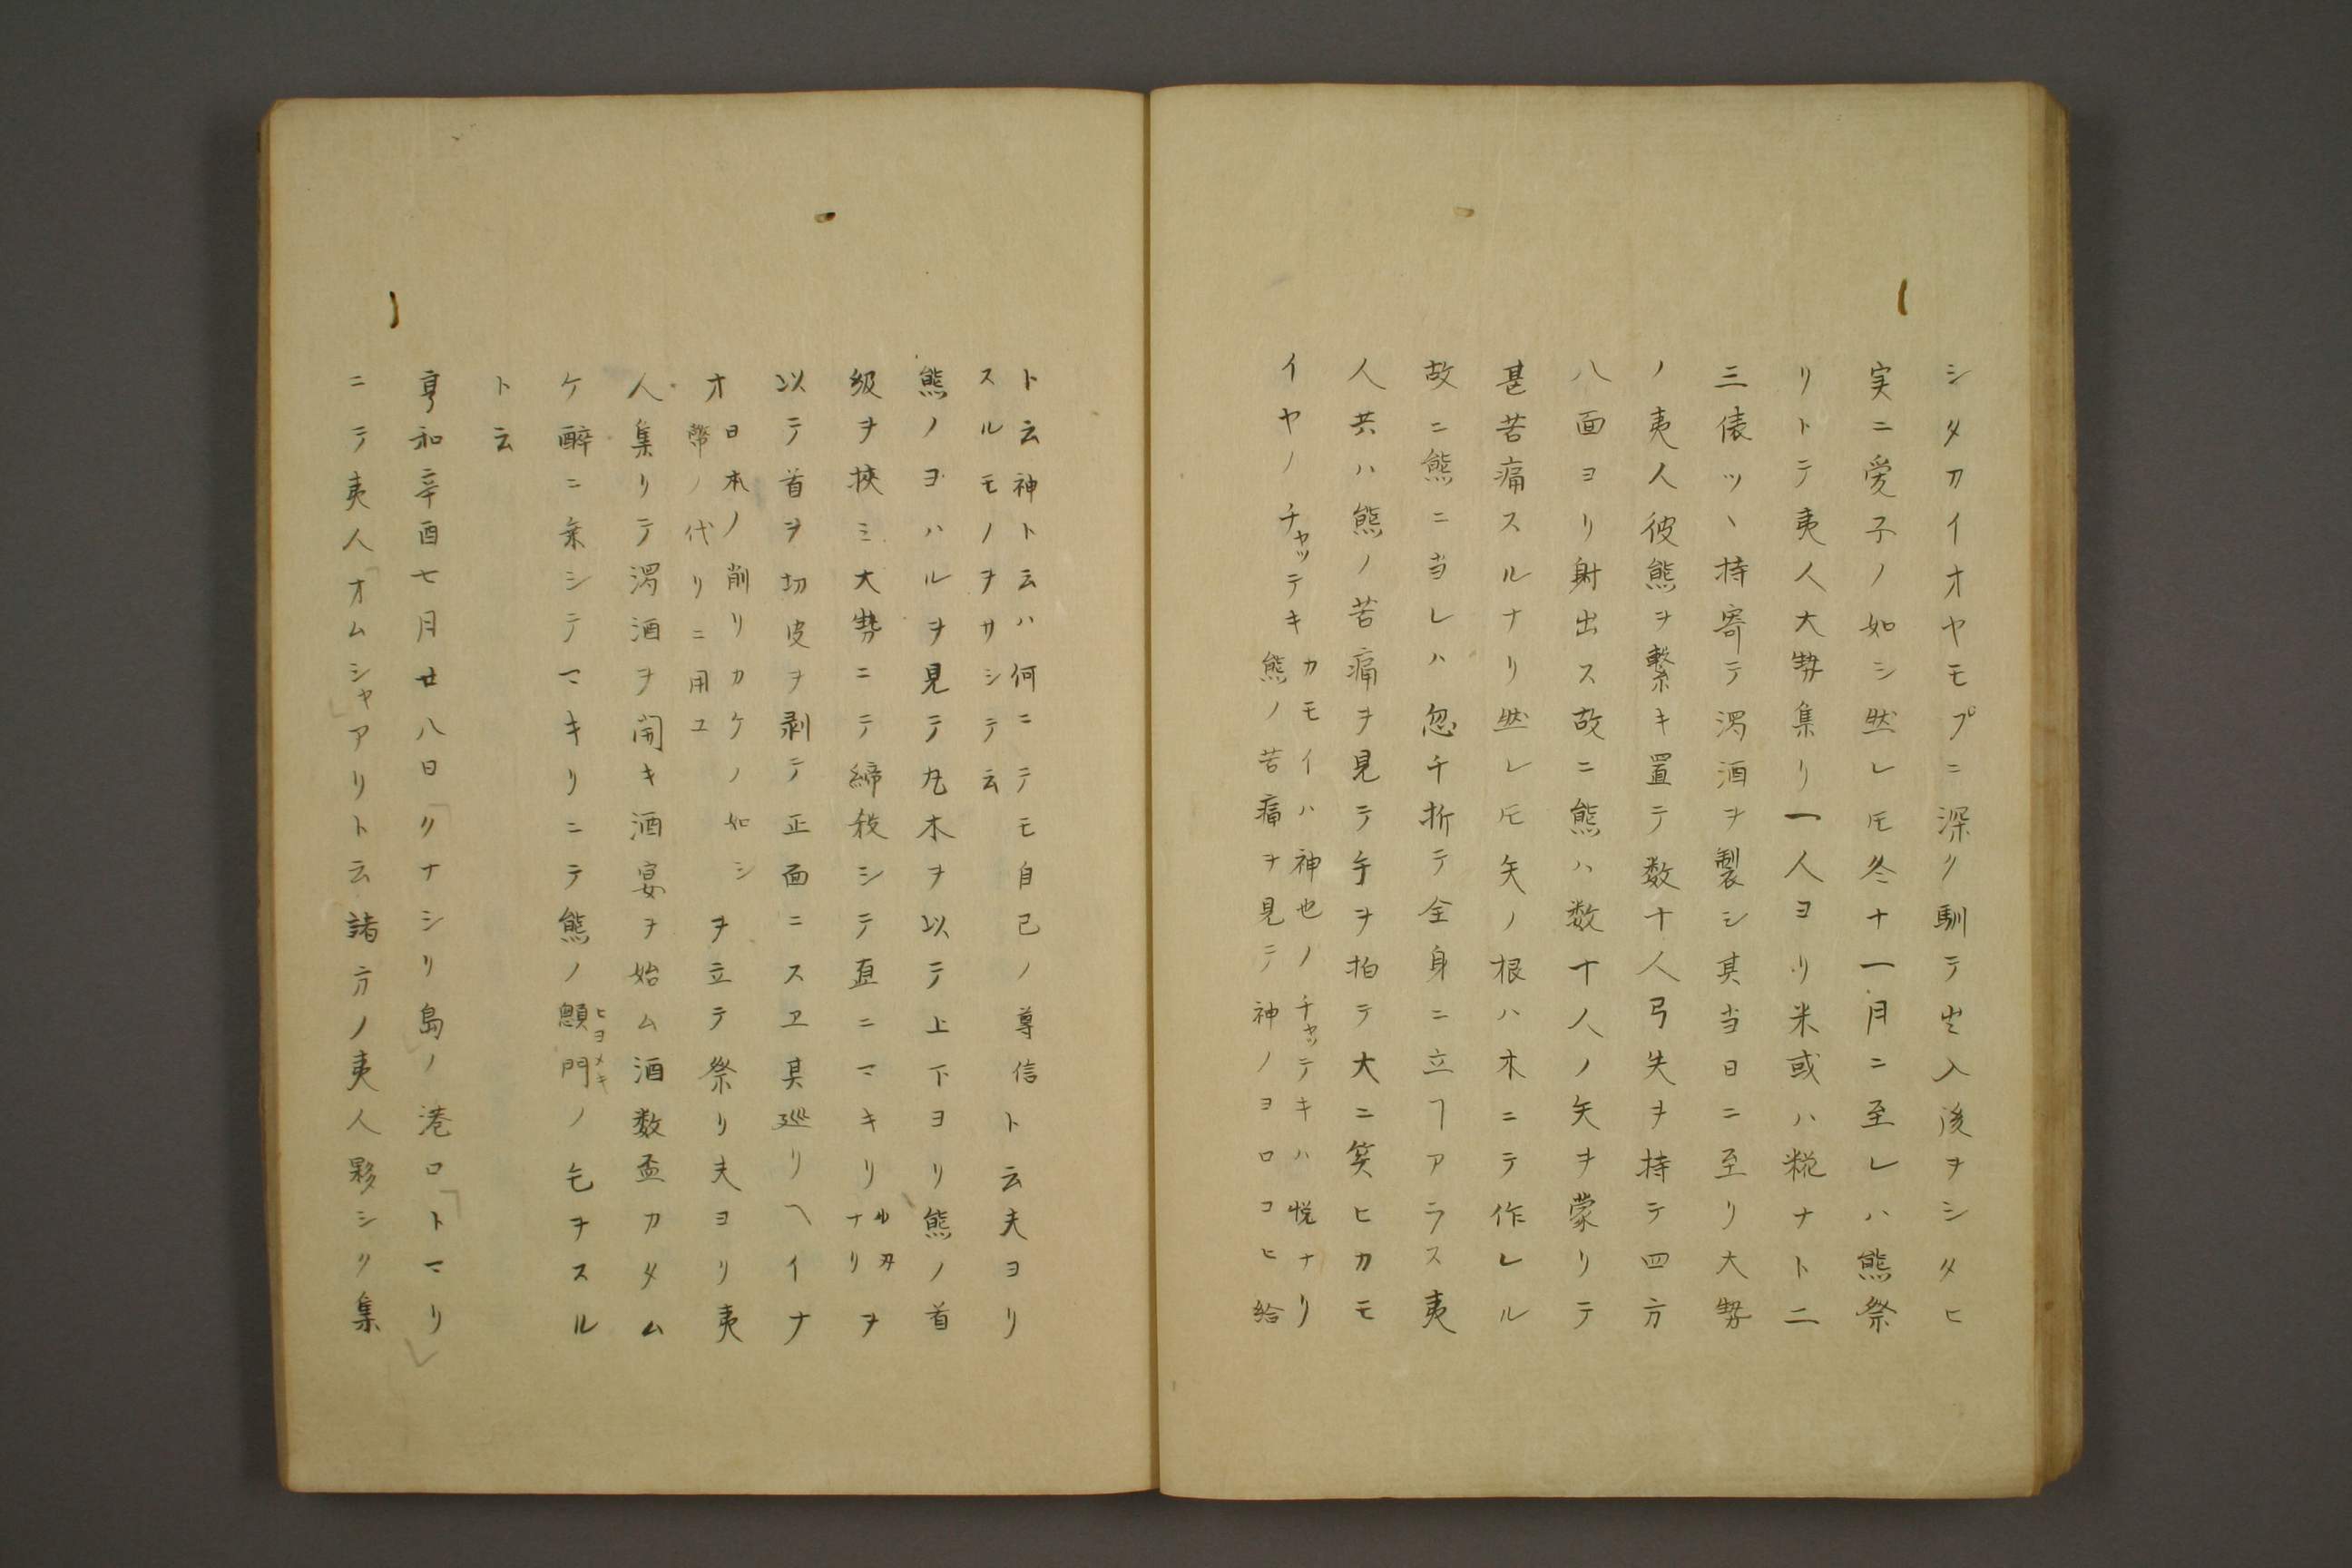 シタカイオヤモプニ深ク馴テ出入後ヲシタヒ
実ニ愛子ノ如シ然レ𪜈冬十一月ニ至レハ熊祭
リトテ夷人大勢集リ一人ヨリ米或ハ糀ナト二
三俵ツヽ持寄テ濁酒ヲ製シ其当日ニ至リ大勢
ノ夷人彼熊ヲ繫キ置テ数十人弓矢ヲ持テ四方
八面ヨリ射出ス故ニ熊ハ数十人ノ矢ヲ蒙リテ
甚苦痛スルナリ然レ𪜈矢ノ根ハ木ニテ作レル
故ニ熊ニ当レハ忽チ折テ全身ニ立ヿアラス夷
人共ハ熊ノ苦痛ヲ見テ手ヲ拍テ大ニ笑ヒカモ
イヤノチャッテキ
カモイハ神也ノチャッテキハ悦ナリ
熊ノ苦痛ヲ見テ神ノヨロコヒ給
ト云神ト云ハ何ニテモ自己ノ尊信ト云夫ヨリ
スルモノヲサシテ云
熊ノヨハルヲ見テ丸木ヲ以テ上下ヨリ熊ノ首
級ヲ挾ミ大勢ニテ締殺シテ直ニマキリ
ナリ
ヲ
以テ首ヲ切皮ヲ剥テ正面ニスヱ其廻リヘイナ
オ
日本ノ削リカケノ如シ
幣ノ代リニ用ユ
ヲ立テ祭リ夫ヨリ夷
人集リテ濁酒ヲ開キ酒宴ヲ始ム酒数盃カタム
ケ酔ニ乗シテマキリニテ熊ノ顖門ノ毛ヲスル
ヒヨメキ
ト云
享和辛酉七月廿八日「クナシリ島ノ港口「トマリ」
ニテ夷人「オムシャ」アリト云諸方ノ夷人夥シク集